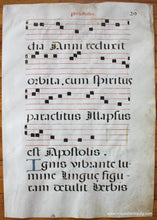 cha Anni reduxit
orbita, cum spiritus
paraclitus illapsus
est Apostolis.
Ignis vibrante lu
mine linguę figu
ram detulit Verbis